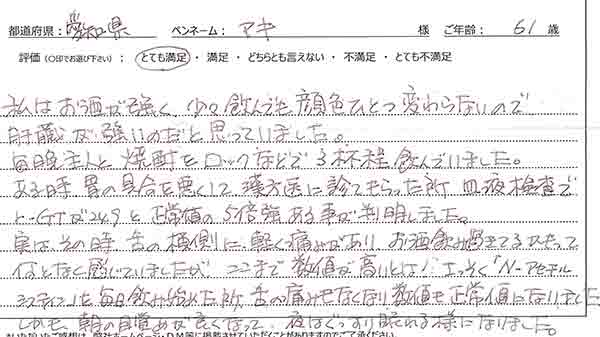 都道府県: 愛知県 ペンネーム: アキ 様 ご年齢: 61 歳
評価 (○印でお選び下さい) とても満足 ・ 満足 ・ どちらとも言えない ・ 不満足 ・ とても不満足
私はお酒が強く、少々飲んでも顔色ひとつ変わらないので
肝臓が強いのだと思っていました。
毎晩主人と焼酎をロックなどで3杯程飲んでいました。
ある時胃の具合を悪くして漢方医に診てもらった所 血液検査で
γ-GTが249と正常値の5倍強ある事が判明しました。
実はその時舌の横側に軽く痛みがあり お酒飲み過ぎてるかもって
何となく感じていましたが、ここまで数値が高いとは! さっそく「N-アセチル
システイン」を毎日飲み始めた所、舌の痛みもなくなり数値も正常値になりました
しかも、朝の目覚めが良くなって、夜はぐっすり眠れる様になりました。